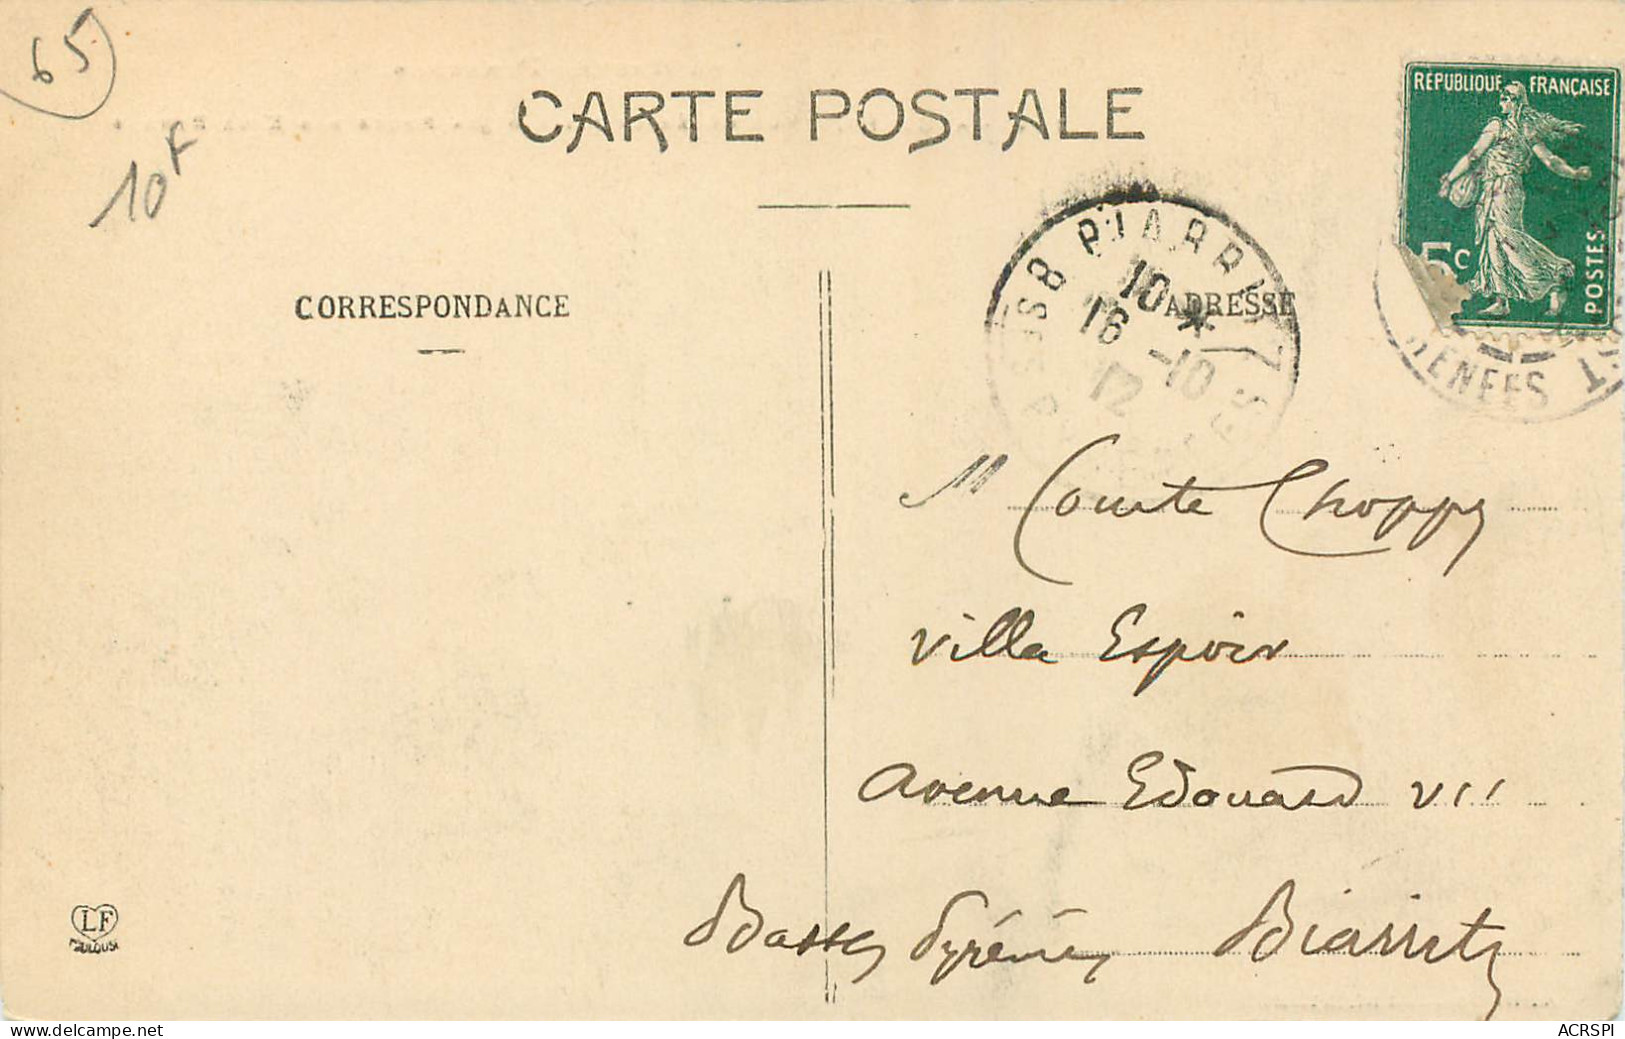 65
10F
CARTE POSTALE
RÉPUBLIQUE FRANÇAISE
5c
POSTES
CORRESPONDANCE
ADRESSE
BIARRITZ
10 *
16 -10
12
ENEES
M Comte Choppy
Villa Espoir
Avenue Edouard VII
Basses Pyrénées Biarritz
LF
TOULOUSE
www.delcampe.net
ACRSPI